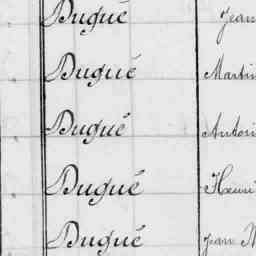 Dugué Jean
Dugué Martin
Dugué Antoi
Dugué Henri
Dugué Jean M